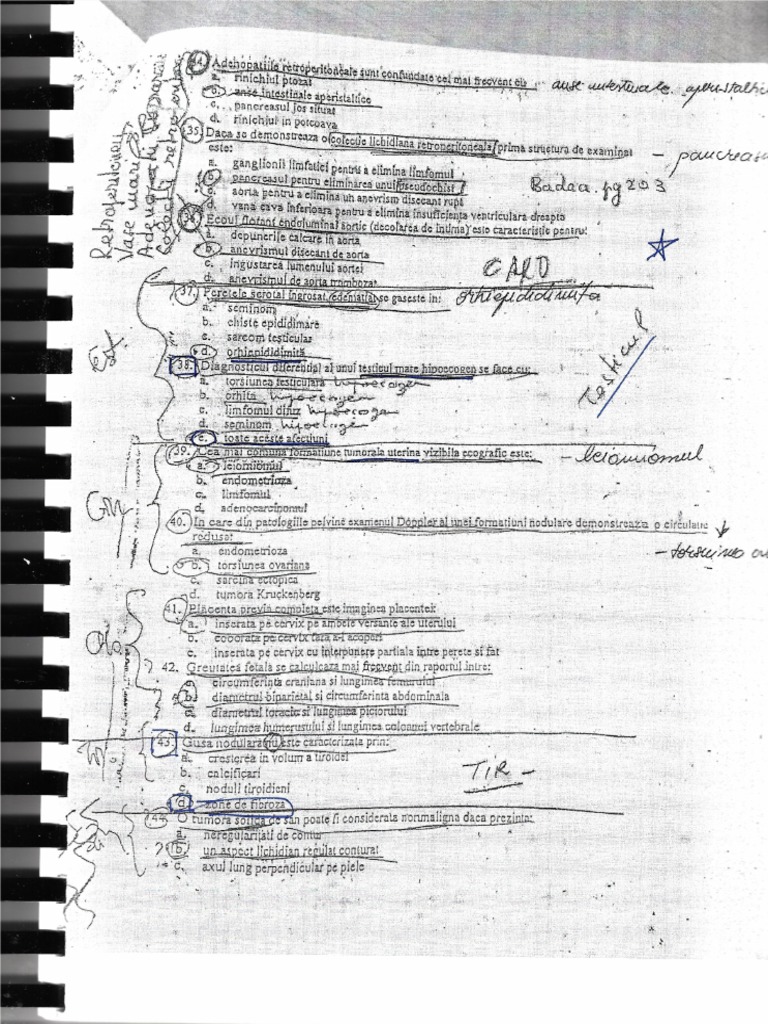 34. Adenopatiile retroperitoneale sunt confundate cel mai frecvent cu:
anse intestinale aperistaltice
a. rinichiul ptozat
b. anse intestinale aperistaltice
c. pancreasul jos situat
d. rinichiul in potcoava
35. Daca se demonstreaza o colectie lichidiana retroperitoneala, prima structura de examinat
este:
- pancreas
a. ganglionii limfatici pentru a elimina limfomul
b. pancreasul pentru eliminarea unui pseudochist
Badea. pg 203
c. aorta pentru a elimina un anevrism disecant rupt
d. vena cava inferioara pentru a elimina insuficienta ventriculara dreapta
Retroperitoneu
Vase mari
36. Ecoul flotant endoluminal aortic (decolarea de intima) este caracteristic pentru:
a. depunerile calcare in aorta
b. anevrismul disecant de aorta
c. ingustarea lumenului aortei
d. anevrismul de aorta trombozat
CARD
37. Peretele scrotal ingrosat, edematiat se gaseste in:
orhiepididimita
a. seminom
b. chiste epididimare
c. sarcom testicular
d. orhiepididimita
Testicul
38. Diagnosticul diferential al unui testicul mare hipoecogen se face cu:
a. torsiunea testiculara hipoecogen
b. orhita hipoecogen
c. limfomul difuz hipoecogen
d. seminom hipoecogen
e. toate aceste afectiuni
39. Cea mai comuna formatiune tumorala uterina vizibila ecografic este:
- leiomiomul
a. leiomiomul
b. endometrioza
c. limfomul
d. adenocarcinomul
40. In care din patologiile pelvine examenul Doppler al unei formatiuni nodulare demonstreaza o circulatie
redusa:
a. endometrioza
b. torsiunea ovariana
c. sarcina ectopica
d. tumora Kruckenberg
41. Placenta previa completa este imaginea placentei:
a. inserata pe cervix pe ambele versante ale uterului
b. coborata pe cervix fara a-l acoperi
c. inserata pe cervix cu interpunere partiala intre perete si fat
42. Greutatea fetala se calculeaza mai frecvent din raportul intre:
a. circumferinta craniana si lungimea femurului
b. diametrul biparietal si circumferinta abdominala
c. diametrul toracic si lungimea piciorului
d. lungimea humerusului si lungimea coloanei vertebrale
43. Gusa nodulara nu este caracterizata prin:
a. cresterea in volum a tiroidei
b. calcificari
TIR -
c. noduli tiroidieni
d. zone de fibroza
44. O tumora solida de san poate fi considerata nonmaligna daca prezinta:
a. neregularitati de contur
b. un aspect lichidian regulat conturat
c. axul lung perpendicular pe piele